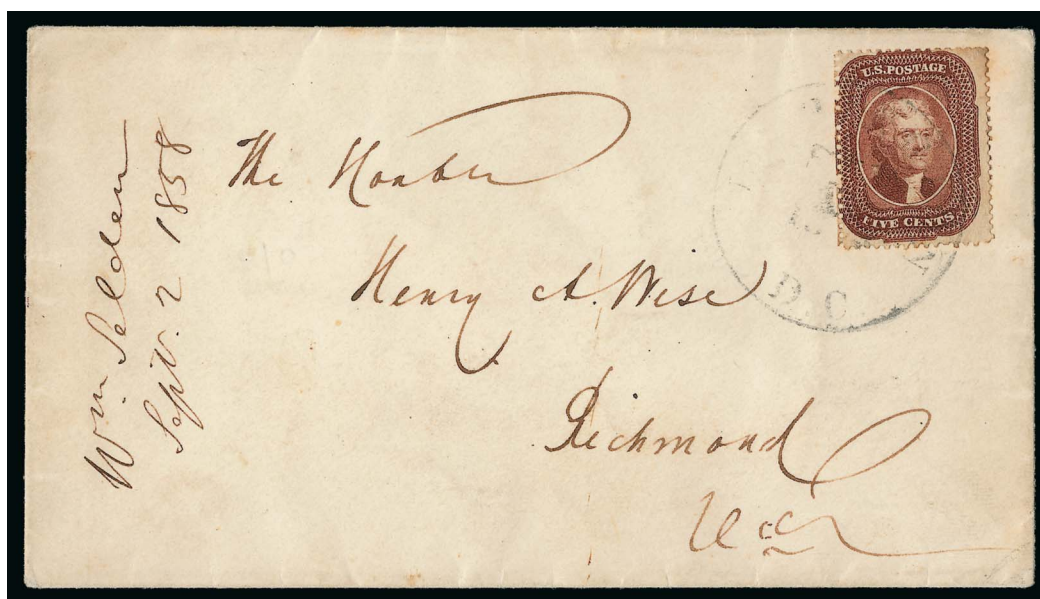 Wm Selden
Sept. 2 1858
The Honble
Henry A. Wise
Richmond
Va
U.S. POSTAGE
FIVE CENTS
D.C.